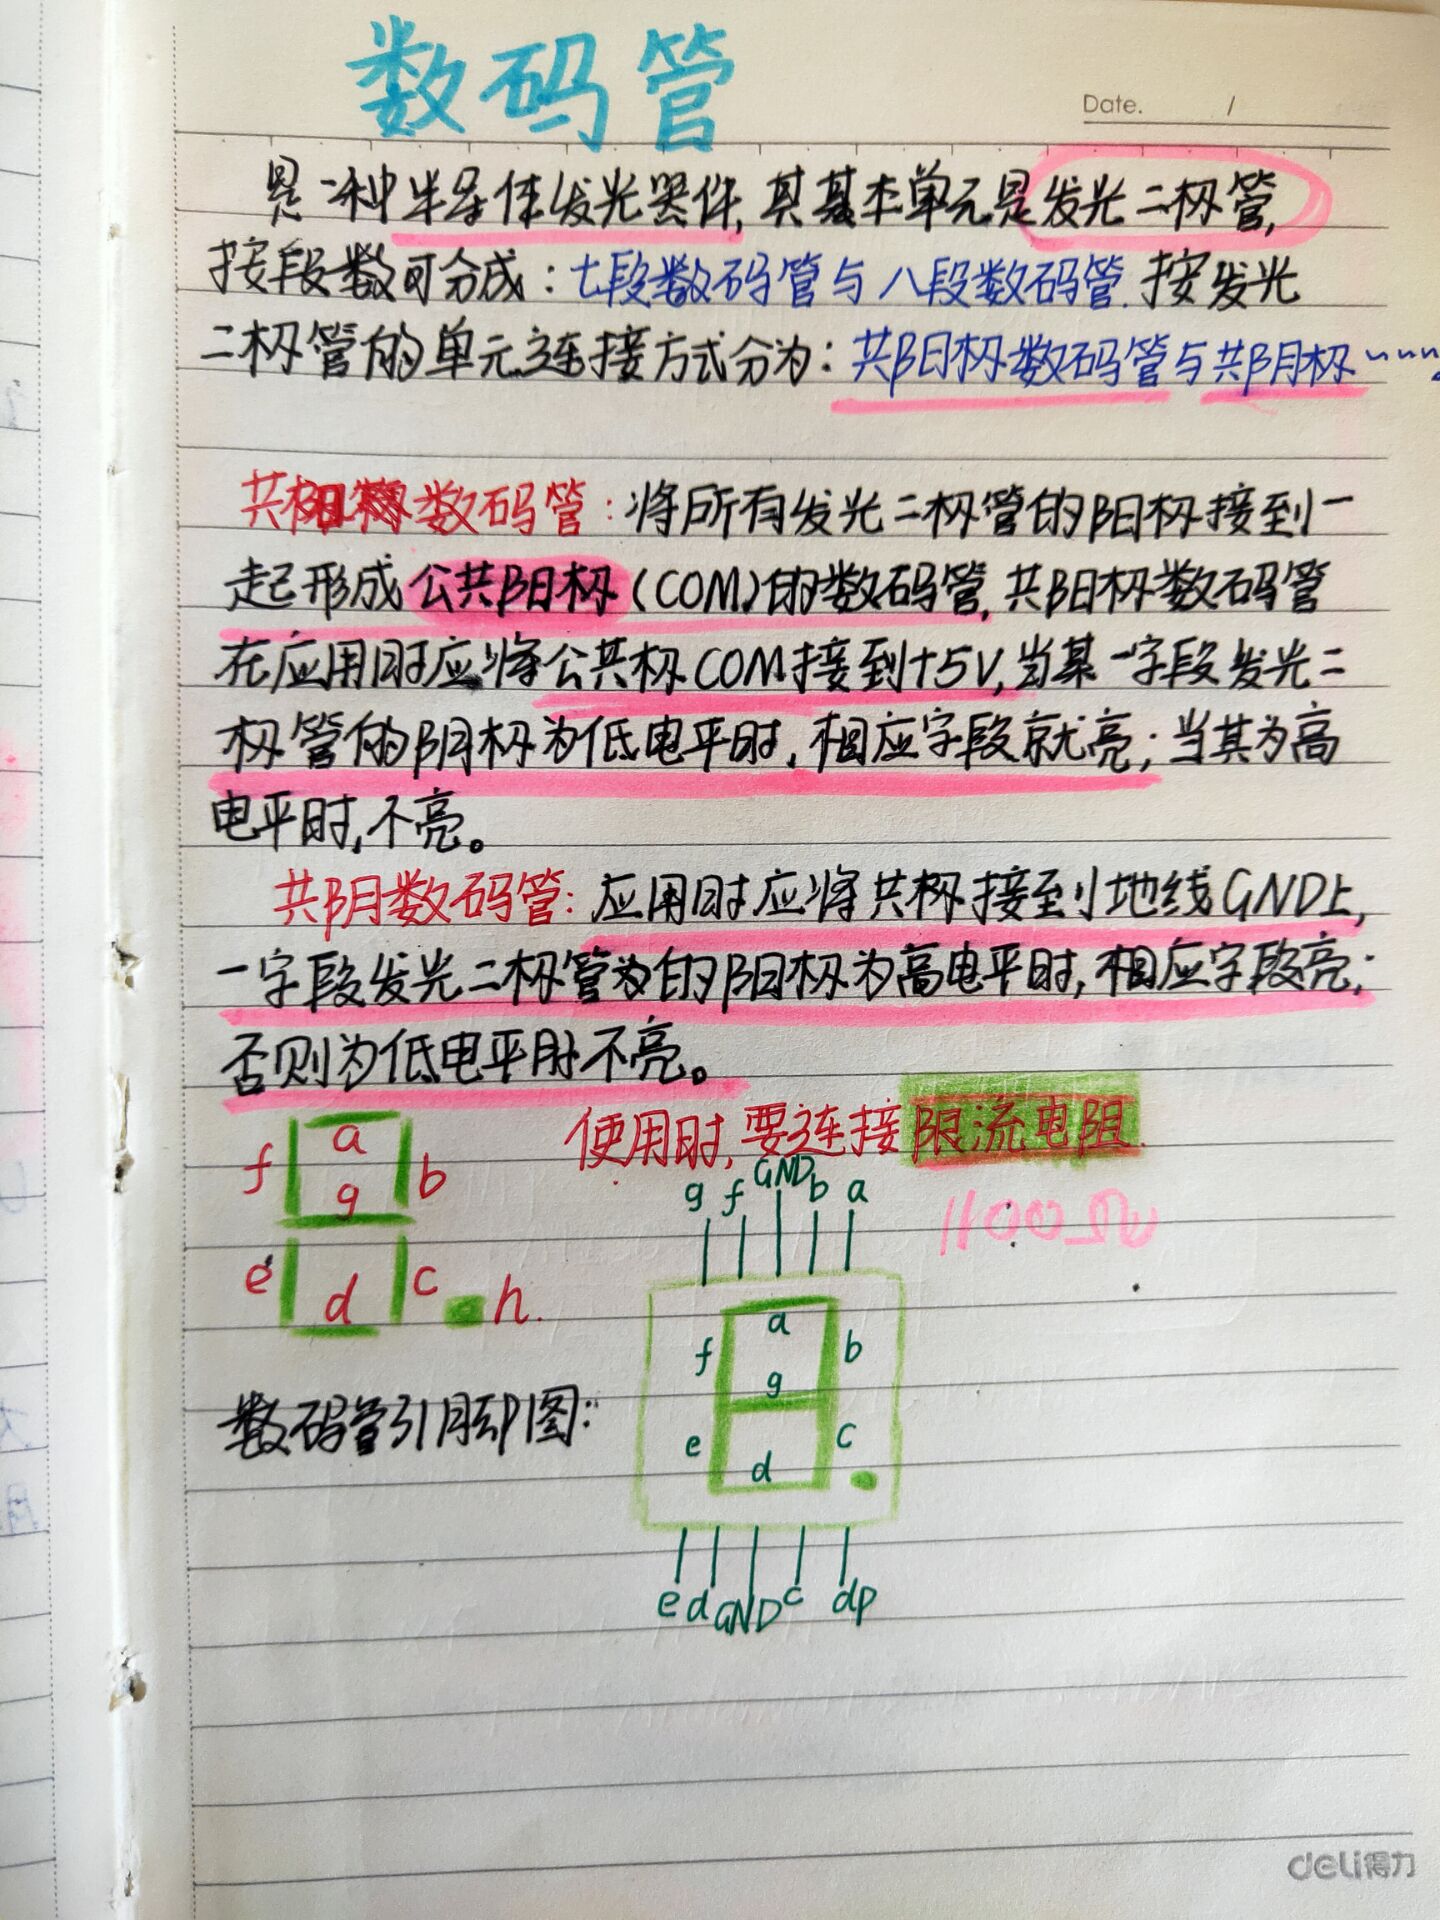 数码管
Date. /
是一种半导体发光器件,其基本单元是发光二极管,
按段数可分成:七段数码管与八段数码管.按发光
二极管的单元连接方式分为:共阳极数码管与共阴极……
共阳极数码管:将所有发光二极管的阳极接到一
起形成公共阳极(COM)的数码管,共阳极数码管
在应用时应将公共极COM接到+5V,当某一字段发光二
极管的阴极为低电平时,相应字段就亮;当其为高
电平时,不亮。
共阴数码管:应用时应将共极接到地线GND上,
一字段发光二极管为的阳极为高电平时,相应字段亮;
否则为低电平时不亮。
使用时,要连接限流电阻.
a
f b
g
e c
d h.
g f GND b a
a
f b
g
e c
d
数码管引脚图:
e d GND c dp
deli得力